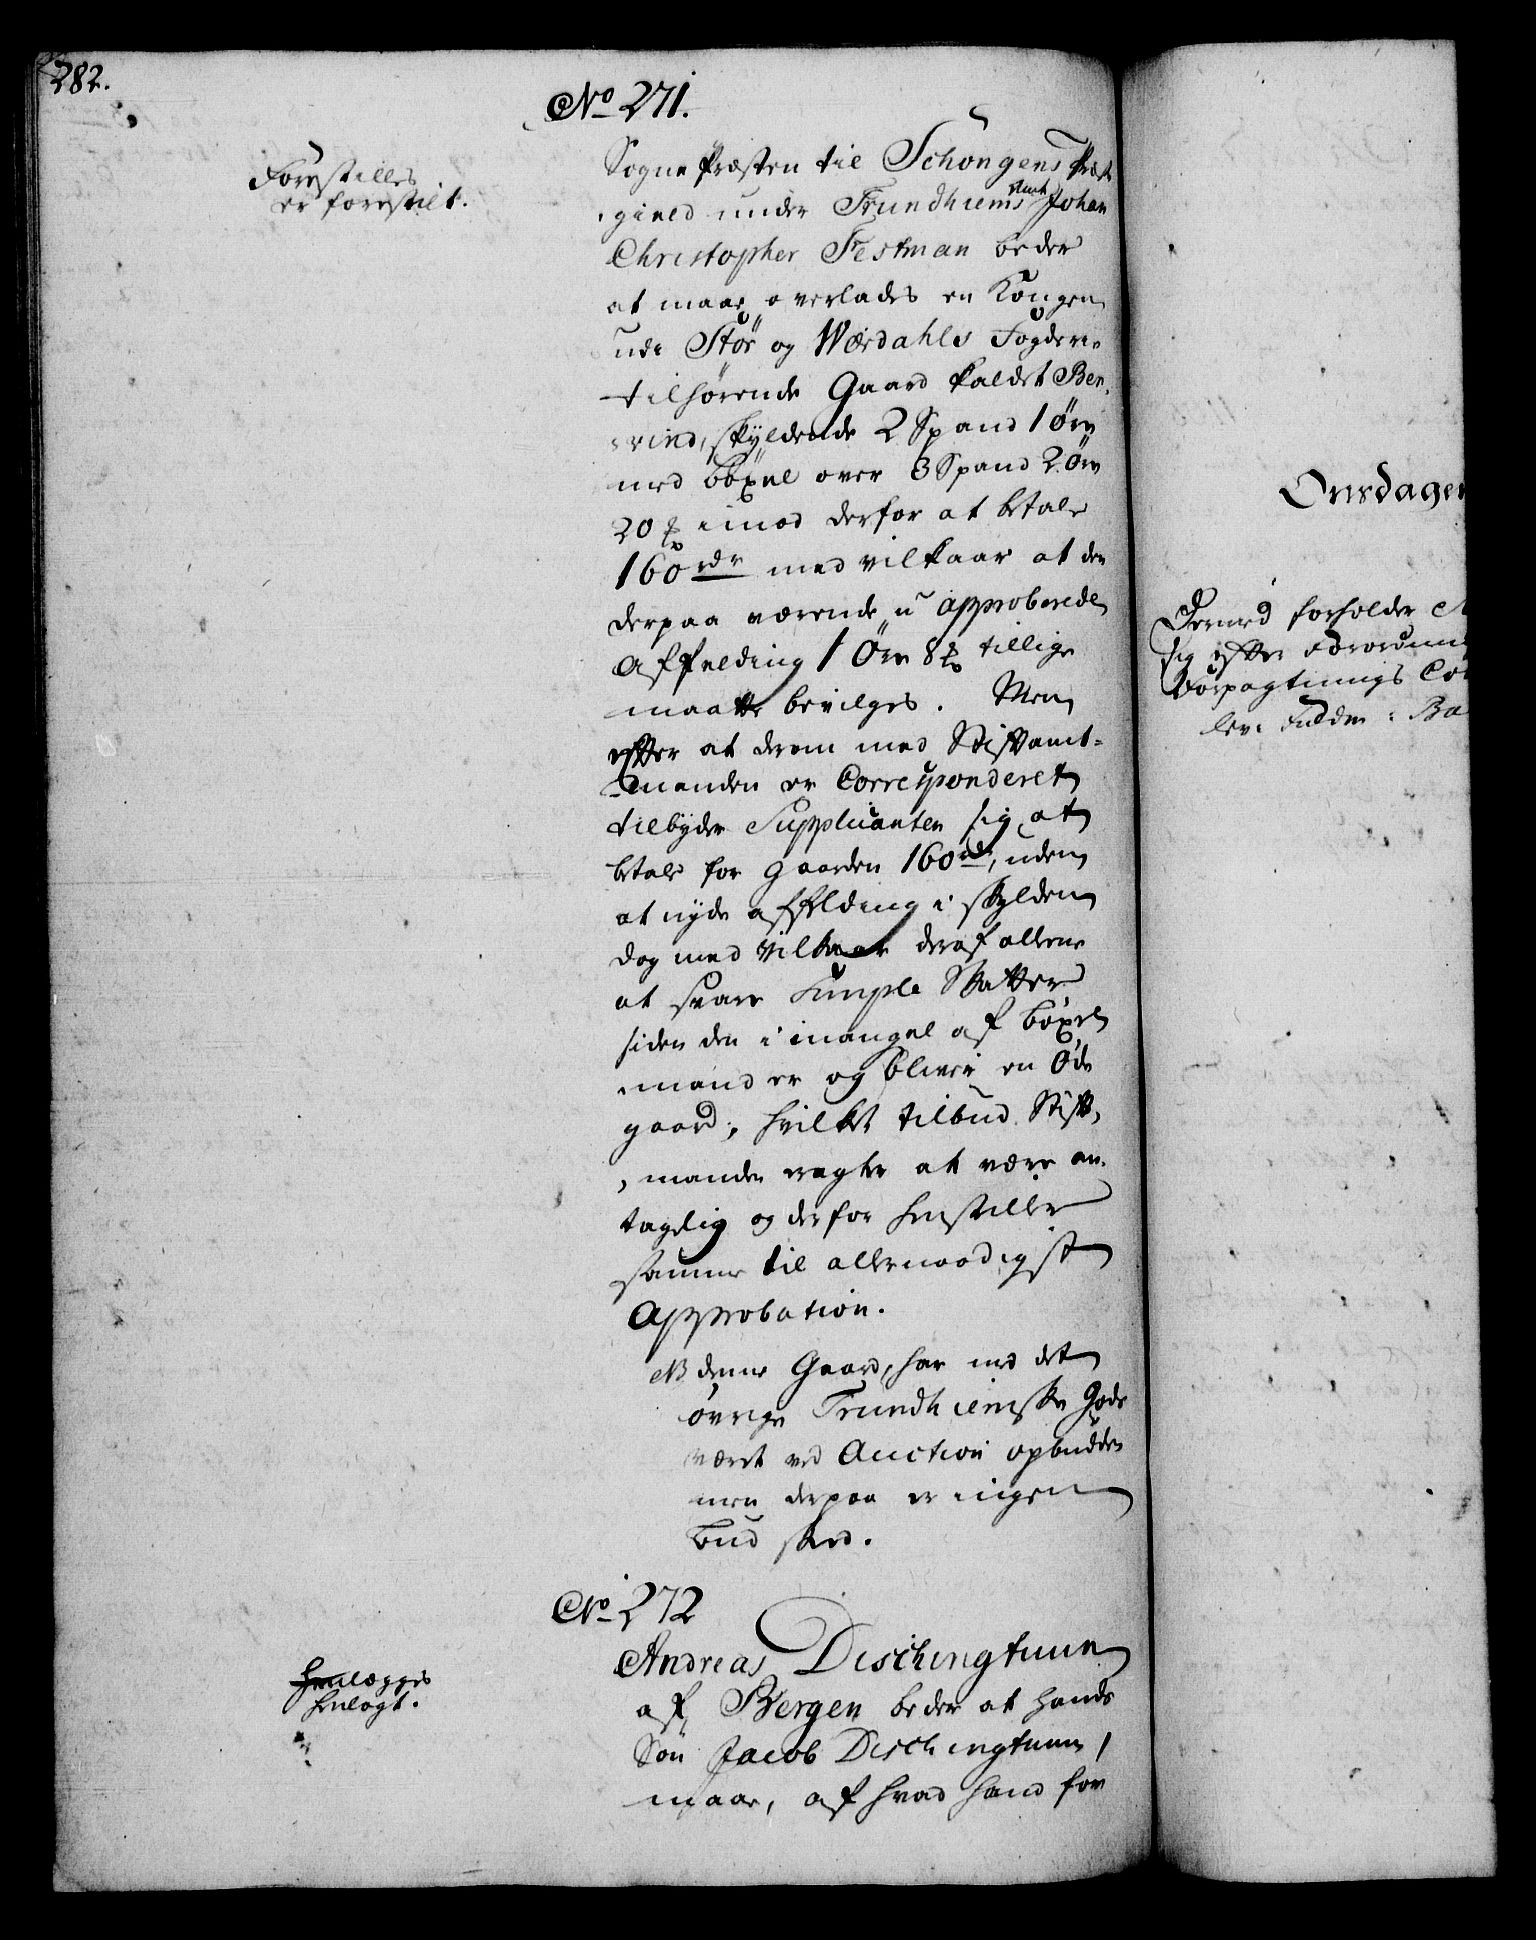 282.
No 271.
Forestilles
er forestilt.
Sogne Præsten til Schongens Præste
gield under Trundhiems Amt Johan
Christopher Festman beder
at maae overlades en Kongen
udi Stør og Wærdahls Fogderie
tilhørende Gaard kaldet Ber-
vind, skyldende 2 Spand 1 Øre
med böxel over 3 Spand 2 Øre
20 imod derfor at betale
160 rdr med vilkaar at den
derpaa værende u approberede
Affælding 1 Øre 8 tillige
maatte bevilges. Men
efter at derom med Stiftamt-
manden er Corresponderet
tilbyder Supplicanten sig at
betale for gaarden 160 rdr, uden
at nyde affelding i skylden
dog med Vilkaar deraf allene
at svare Simple Skatter
siden den i mangel af böxel
mand er og bliver en Øde
gaard, hvilket tilbud Stift-
manden eragter at være an-
tagelig og derfor henstiller
samme til allernaadigst
Approbation.
NB denne Gaard har med det
øvrige Trundhiemske Gods
været ved Auction opbudden
men derpaa er ingen
bud skeed.
No 272
henlægges
henlagt.
Andreas Dischingtuun
af Bergen beder at hands
Søn Jacob Dischingtuun
maae, af hvad hand for
Onsdagen
Dermed forholder
sig efter Forordning
Forpagtnings Con